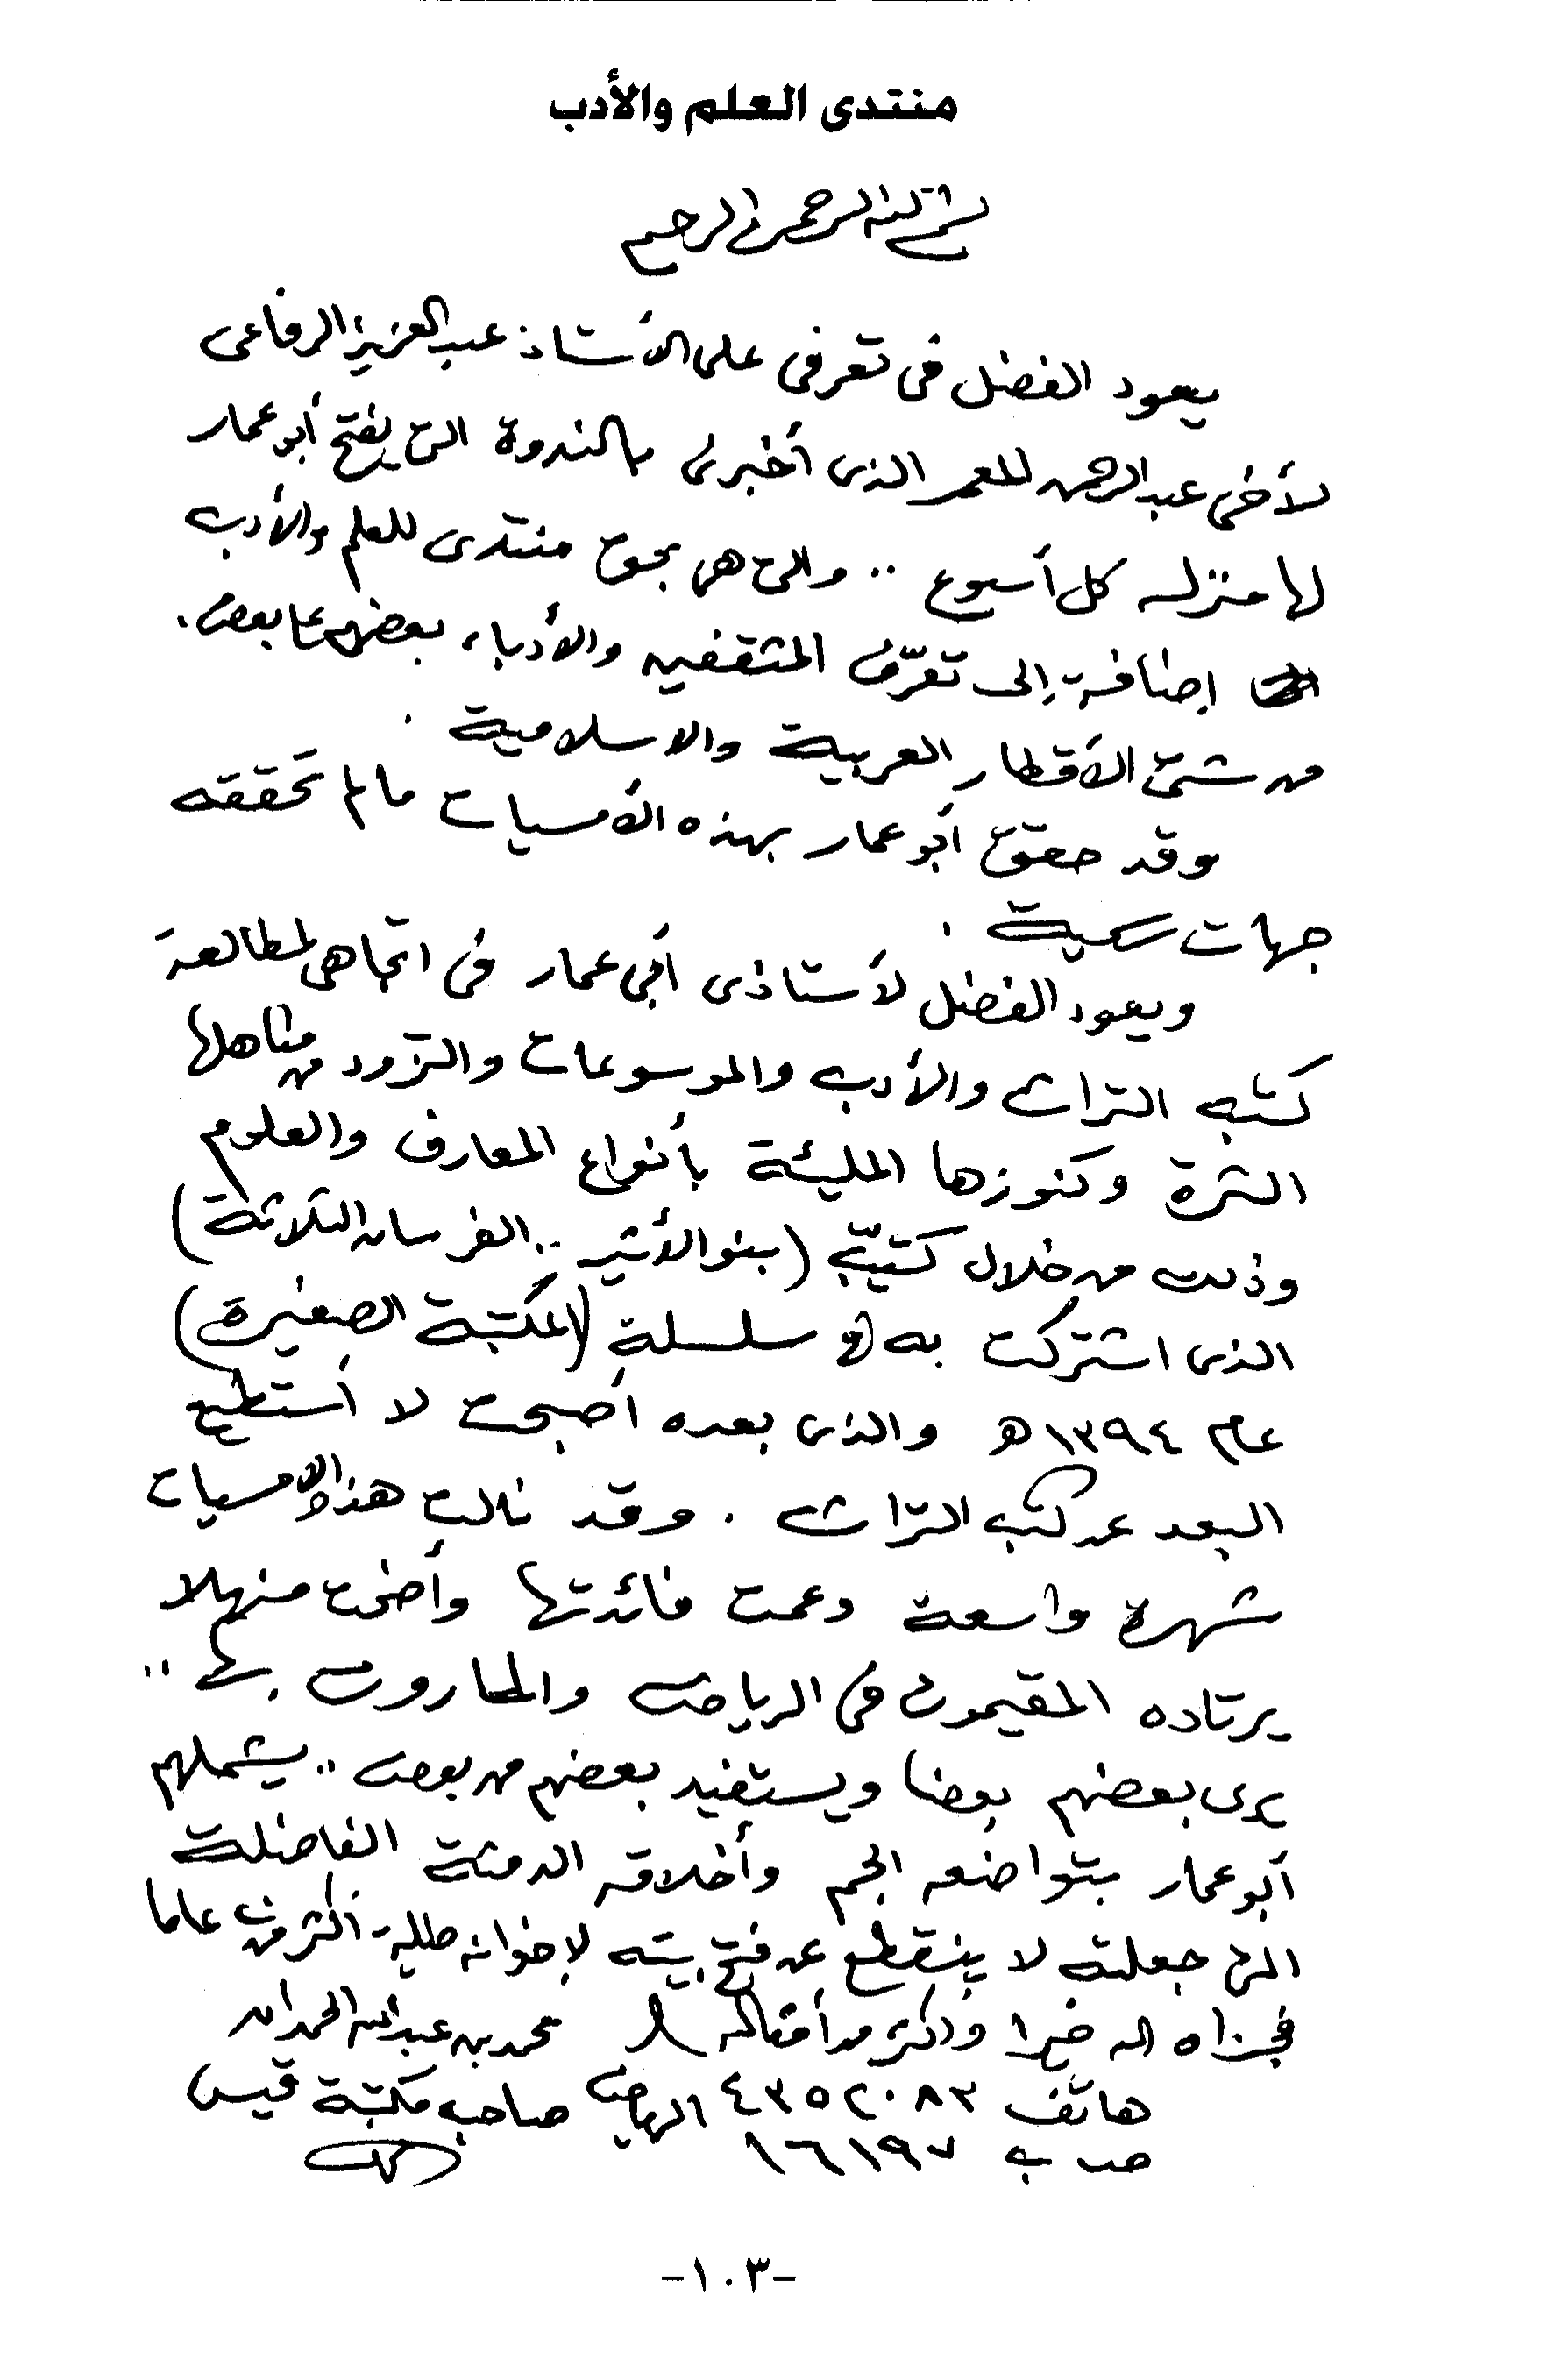 منتدى العلم والأدب
بسم الله الرحمن الرحيم
يعود الفضل في تعرفي على الأستاذ عبد العزيز الرفاعي
لأخي عبد الرحمن المعمر الذي أخبرني بالندوة التي يفتح أبو عمار
لها منزله كل أسبوع .. والتي هي بحق منتدى للعلم والأدب
إضافة إلى تعرّف المثقفين والأدباء بعضهم على بعض .
من شتى الأقطار العربية والاسلامية .
وقد حقق أبو عمار بهذه الأمسيات مالم تحققه
جهات رسمية .
ويعود الفضل لأستاذي أبي عمار في اتجاهي لمطالعة
كتب التراث والأدب والموسوعات والتزود من مناهلها
الثرة وكنوزها المليئة بأنواع المعارف والعلوم
وذلك من خلال كتيّب (بنو الأثير .. الفرسان الثلاثة)
الذي اشتركت به في سلسلة (المكتبة الصغيرة)
عام ١٣٩٤ه والذي بعده أصبحت لا أستطيع
البعد عن كتب التراث . وقد نالت هذه الأمسيات
شهرة واسعة وعمت فائدتها وأضحت منهلا
يرتاده المقيمون في الرياض والمارون بها ..
يرى بعضهم بعضا ويستفيد بعضهم من بعض .. يشملهم
أبو عمار بتواضعه الجم وأخلاقه الدمثة الفاضلة
التي جعلته لا ينقطع عن فتح بيته لإخوانه طيلة أكثر من عاما
فجزاه الله خيرا وأكثر من أمثاله محمد بن عبدالله الحمدان
هاتف ٤٣٥٢٠٨٣ الرياض صاحب مكتبة قيس
ص ب ١٦١٩٧
-١٠٣-